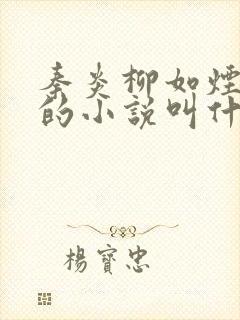 秦炎柳如煙
的小說叫什
楊寶忠